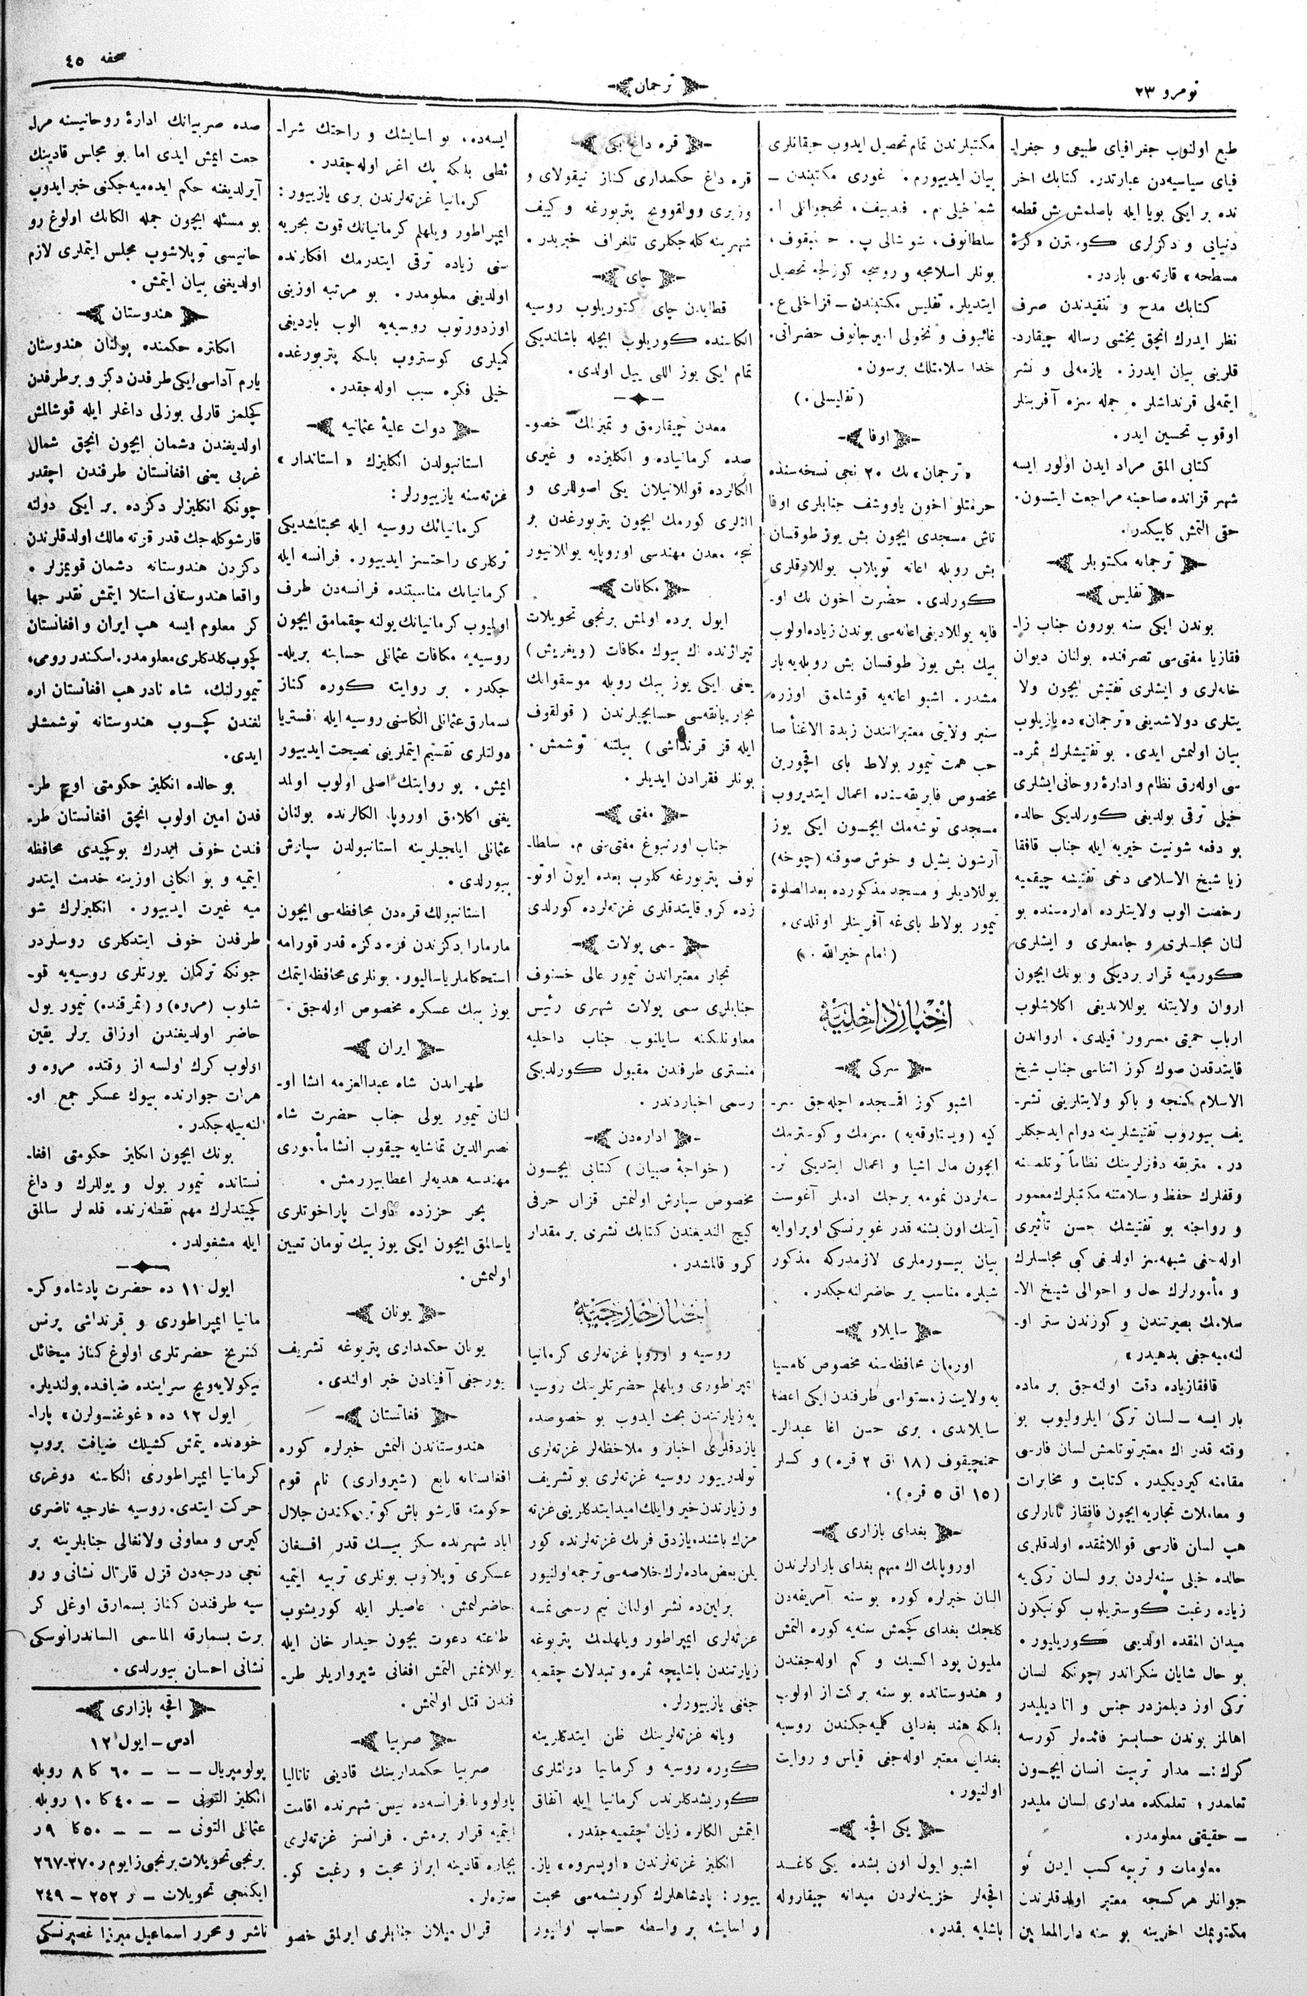 نومرو ٢٣
ترجمان
صحفه ٤٥
طبع اولنوب جغرافیای طبیعی و جغرا۔
فیای سیاسیه‌دن عبارتدر. کتابك اخر
نده بر ایکی بویا ایله باصلمش بش قطعه
دنیایی و دکزلری کوسترن «کرۀ
مسطحه» قارته‌سی باردر.
کتابك مدح و تنقیدندن صرف
نظر ایدرك انچق بخشی رساله چیقارد۔
قلرینی بیان ایدرز. یازمه‌لی و نشر
ایتمه‌لی قرنداشلر. جمله سزه آفرینلر
اوقوب تحسین ایدر.
کتابی المق مراد ایدن اولور ایسه
شهر قزانده صاحبنه مراجعت ایتسون.
حقی التمش کاپیکدر.
ترجمانه مکتوبلر
تفلیس
بوندن ایکی سنه بورون جناب زا۔
فقازیا مفتی‌سی تصرفنده بولنان دیوان
خانه‌لری و ایشلری تفتیش ایچون ولا
یتلری دولاشدیغی «ترجمان» ده یازیلوب
بیان اولنمش ایدی. بو تفتیشلرك ثمره۔
سی اوله‌رق نظام و ادارۀ روحانی ایشلری
خیلی ترقی بولدیغی کورلدیکی حالده
بو دفعه شونیت خیریه ایله جناب قافقا
زیا شیخ الاسلامی دخی تفتیشه چیقمیه
رخصت الوب ولایتلرده اداره‌سنده بو
لنان مجلسلری و جامعلری و ایشلری
کورمیه قرار بردیکی و بونك ایچون
اروان ولایتنه یوللاندیغی اکلاشلوب
ارباب حمیتی مسرور قیلدی. ارواندن
قایتدقدن صوك کوز اثناسی جناب شیخ
الاسلام کنجه و باکو ولایتلرینی تشر۔
یف بیوروب تفتیشلرینه دوام ایدجکلر
در. متریقه دفترلرینك نظاماً توتلمسنه
وقفلرك حفظ و سلامتنه مکتبلرك معمور
و رواجنه بو تفتیشك حسن تأثیری
اوله‌جغی شبهه‌سز اولدغی کبی مجلسلرك
و مأمورلرك حال و احوالی شیخ الا۔
سلامك بصیرتندن و کوزندن ستر او۔
لنه‌میه‌جغی بدهیدر»
قافقازیاده دقت اولنه‌جق بر ماده
بار ایسه ــ لسان ترکی ایلرولیوب بو
وقته قدر اك معتبر توتلمش لسان فارسی
مقامنه کیردیکیدر. کتابت و مخابرات
و معاملات تجاریه ایچون قافقاز تاتارلری
هپ لسان فارسی قوللانمقده اولدقلری
حالده خیلی سنه‌لردن برو لسان ترکی‌یه
زیاده رغبت کوستریلوب کونیکون
میدان المقده اولدیغی کوریلیور.
بو حال شایان شکراندر چونکه لسان
ترکی اوز دیلمزدر جنس و انا دیلیدر
اهالمز بوندن حسابسز فائده‌لر کورسه
کرك: ــ مدار تربیت انسان ایچون
تعلمدر؛ تعلمکده مداری لسان ملیدر
ــ حقیقتی معلومدر.
معلومات و تربیه کسب ایدن بو
جوانلر هرکسجه معتبر اولدقلرندن
مکتوبمك اخرینه بو سنه دارالمعلمین
مکتبلرندن تمام تحصیل ایدوب چیقانلری
بیان ایدییورم. غوری مکتبندن ــ
سلطانوف، شوشالی پ.
بونلر اسلامجه و روسجه کوزلجه تحصیل
ایتدیلر. تفلیس مکتبندن ــ قزاخلی ع.
غائبوف و نخولی امیرجانوف حضراتی.
خدا سلامتلك برسون.
(تفلیسلی.)
اوفا
«ترجمان» نك ٢٠ نجی نسخه‌سنده
حرمتلو اخون یاووشف جنابلری اوفا
تاش مسجدی ایچون بش یوز طوقسان
بش روبله اعانه توپلاب یوللادقلری
کورلدی. حضرت اخون نك او۔
فایه یوللادیغی اعانه‌سی بوندن زیاده اولوب
بیك بش یوز طوقسان بش روبله‌یه بار
مشدر. اشبو اعانه‌یه قوشلمق اوزره
سنبر ولایتی معتبرانندن زبدة الاغنأ صا
حب همت تیمور بولاط بای اقچورین
مخصوص فابریقه‌سنده اعمال ایتدیروب
مسجدی توشه‌مك ایچون ایکی یوز
آرشون یشیل و خوش صوقنه (چوخه)
یوللادیلر و مسجد مذکورده بعد الصلوة
تیمور بولاط بای‌غه آفرینلر اوقلدی.
(امام خیرالله.)
اخبار داخلیه
سرکی
اشبو کوز اقمسجده اچله‌جق سر۔
کیه (ویستاوقه‌یه) سرمك و کوسترمك
ایچون مال اشیا و اعمال ایتدیکی نر۔
سه‌لردن نمونه برجك ادملر آغوست
آینك اون بشنه قدر غوبرنسکی اوپراوایه
بیان بیورملری لازمدرکه مذکور
شیلره مناسب یر حاضرلنه‌جکدر.
سایلاو
اورمان محافظه‌سنه مخصوص قامسیا
یه ولایت زمستواسی طرفندن ایکی اعضا
سایلاندی. بری حسن اغا عبدالر۔
حمنچیقوف (١٨ اق ٢ قره) و کسلر
(١٥ اق ٥ قره).
بغدای بازاری
اوروپانك اك مهم بغدای بازارلرندن
النان خبرلره کوره بو سنه آمریقه‌دن
کلجك بغدای کچمش سنه‌یه کوره التمش
ملیون پود اکسیك و کم اوله‌جغندن
و هندوستانده بو سنه برکت از اولوب
بلکه هند بغدایی کلمیه‌جکندن روسیه
بغدایی معتبر اوله‌جغی قیاس و روایت
اولنیور.
یکی اقچه
اشبو ایول اون بشده یکی کاغد
اقچه‌لر خزینه‌لردن میدانه چیقاروله
باشلایه‌جقدر.
قره داغ بکی
قره داغ حکمداری کناز نیقولای و
وزیری وولقوویچ پتربورغه و کیف
شهرینه کله‌جکلری تلغراف خبریدر.
چای
قطایدن چای کتوریلوب روسیه
الکاسنده کوریلوب ایچله باشلاندیکی
تمام ایکی یوز اللی ییل اولدی.
معدن چیقارمق و تمیزلك خصو۔
صده کرمانیاده و انکلیزده و غیری
الکالرده قوللانیلان یکی اصوللری و
التلری کورمك ایچون پتربورغدن بر
نیچه معدن مهندسی اوروپایه یوللانیور
مکافات
ایول برده اولمش برنجی تحویلات
تیراژنده اك بیوك مکافات (ویغریش)
یعنی ایکی یوز بیك روبله موسقوانك
تجار بانقه‌سی حسابچیلرندن (قولقوف
ایله قز قرنداشی) بیلتنه توشمش.
بونلر فقرادن ایدیلر.
مفتی
جناب اورنبورغ مفتی‌سی م. سلطا۔
نوف پتربورغه کلوب بعده ایون اوتو۔
زده کرو قایتدقلری غزته‌لرده کورلدی
سمی پولات
تجار معتبراندن تیمور عالی خسنوف
جنابلری سمی پولات شهری رئیس
معاونلکنه سایلنوب جناب داخلیه
منستری طرفندن مقبول کورلدیکی
رسمی اخباردندر.
اداره‌دن
(خواجۀ صبیان) کتابی ایچون
مخصوص سپارش اولنمش قزان حرفی
کیچ الندیغندن کتابك نشری بر مقدار
کرو قالمشدر.
اخبار خارجیه
روسیه و اوروپا غزته‌لری کرمانیا
ایمپراطوری ویلهلم حضرتلرینك روسیا
یه زیارتندن بحث ایدوب بو خصوصده
یازدقلری اخبار و ملاحظه‌لر غزته‌لری
تولدرییور روسیه غزته‌لری بو تشریف
و زیارتدن خیر و ایلك امید ایتدکلرینی غزته
مزك باشنده یازدق فرنك غزته‌لرنده کور
یلن بعض ماده‌لرك خلاصه‌سی ترجمه اولنیور
برلین‌ده نشر اولنان نیم رسمی نمسه
غزته‌لری ایمپراطور ویلهلمك پتربوغه
زیارتندن باشلیچه ثمره و تبدلات چقمیه
جغنی یازییورلر.
ویانه غزته‌لرینك ظن ایتدکلرینه
کوره روسیه و کرمانیا دزائلری
کوریشدکلرندن کرمانیا ایله اتفاق
ایتمش الکالره زیان چقمیه‌جقدر.
انکلیز غزته‌لرندن «اوبسروه» یاز۔
ییور: پادشاهلرك کوریشمه‌سی محبت
و اسایشه بر واسطه حساب اولنیور
ایسه‌ده، بو اسایشك و راحتك شرا۔
ئطی بلکه پك اغر اوله‌جقدر.
کرمانیا غزته‌لرندن بری یازییور:
ایمپراطور ویلهلم کرمانیانك قوت بحریه
سنی زیاده ترقی ایتدرمك افکارنده
اولدیغی معلومدر. بو مرتبه اوزینی
اوزدورتوب روسیه‌یه الوب باردیغی
کمیلری کوستروب بلکه پتربورغده
خیلی فکره سبب اوله‌جقدر.
دولت علیۀ عثمانیه
استانبولدن انکلیزك «استاندار»
غزته‌سنه یازییورلر:
کرمانیانك روسیه ایله محبتلشدیکی
ترکلری راحتسز ایدییور. فرانسه ایله
کرمانیانك مناسبتنده فرانسه‌دن طرف
اولمیوب کرمانیانك یولنه چقمامق ایچون
روسیه‌یه مکافات عثمانلی حسابنه بریله۔
جکدر. بر روایته کوره کناز
بسمارق عثمانلی الکاسنی روسیه ایله افستریا
دولتلری تقسیم ایتملرینی نصیحت ایدییور
ایمش. بو روایتك اصلی اولوب اولمد
یغنی اکلامق اوروپا الکالرنده بولنان
عثمانلی ایلچیلرینه استانبولدن سپارش
بیورلدی.
استانبولك قره‌دن محافظه‌سی ایچون
مارمارا دکزندن قره دکزه قدر قورامه
استحکاملر یاسالیور. بونلری محافظه ایتمك
یوز بیك عسکره مخصوص اوله‌جق.
ایران
طهراندن شاه عبدالعزمه انشا او۔
لنان تیمور یولی جناب حضرت شاه
نصرالدین تماشایه چیقوب انشا مأموری
مهندسه هدیه‌لر اعطا بیورمش.
بحر خزرده قاوات پاراخوتلری
یاسالمق ایچون ایکی یوز بیك تومان تعیین
اولنمش.
یونان
یونان حکمداری پتربوغه تشریف
بیورجغی آفینادن خبر اولندی.
افغانستان
هندوستاندن النمش خبرلره کوره
افغانستانه تابع (شیرواری) نام قوم
حکومته قارشو باش کوتردیکندن جلال
اباد شهرنده سکز بیك قدر افغان
عسکری توپلانوب بونلری تربیه ایتمیه
حاضرلنمش. عاصیلر ایله کوریشوب
طاعته دعوت ایچون حیدار خان ایله
یوللانمش التمش افغانی شیرواریلر طر۔
فندن قتل اولنمش.
صربیا
صربیا حکمدارینك قادینی ناتالیا
پاولوونا فرانسه‌ده نیس شهرنده اقامت
ایتمیه قرار برمش. فرانسز غزته‌لری
بیچاره قادینه ابراز محبت و رغبت کو۔
ستره‌لر.
قرال میلان جنابلری ایرلمق خصو
صده صربیانك ادارۀ روحانیسنه مرا۔
جعت ایمش ایدی اما بو مجلس قادینك
آیرلدیغنه حکم ایده‌میه‌جکنی خبر ایدوب
بو مسئله ایچون جمله الکانك اولوغ رو
حانیسی توپلاشوب مجلس ایتملری لازم
اولدیغنی بیان ایتمش.
هندوستان
انکلتره حکمنده بولنان هندوستان
یارم آداسی ایکی طرفدن دکز و بر طرفدن
کچلمز قارلی بوزلی داغلر ایله قوشالمش
اولدیغندن دشمان ایچون انچق شمال
غربی یعنی افغانستان طرفندن اچقدر
چونکه انکلیزلر دکزده بر ایکی دولته
قارشو کله‌جك قدر قوته مالك اولدقلرندن
دکزدن هندوستانه دشمان قویمزلر.
واقعا هندوستانی استلا ایتمش نقدر جها
نکر معلوم ایسه هپ ایران و افغانستان
کچوب کلدکلری معلومدر. اسکندر رومی،
تیمورلنك، شاه نادر هپ افغانستان اره
لغندن کچوب هندوستانه توشمشلر
ایدی.
بو حالده انکلیز حکومتی اوچ طر۔
فدن امین اولوب انچق افغانستان طر۔
فندن خوف ایدرك بو کچیدی محافظه
ایتمیه و بو الکانی اوزینه خدمت ایتدر
میه غیرت ایدییور. انکلیزلرك شو
طرفدن خوف ایتدکلری روسلردر
چونکه ترکمان یورتلری روسیه‌یه قو۔
شلوب (مروه) و (ثمرقنده) تیمور یول
حاضر اولدیغندن اوزاق یرلر یقین
اولوب کرك اولسه از وقتده مروه و
هرات جوارنده بیوك عسکر جمع او۔
لنه‌بیله‌جکدر.
بونك ایچون انکلیز حکومتی افغا۔
نستانده تیمور یول و یوللرك و داغ
کچیتلرك مهم نقطه‌لرنده قلعه‌لر سالمق
ایله مشغولدر.
ایول ١١ ده حضرت پادشاه و کر۔
مانیا ایمپراطوری و قرنداشی پرنس
کنریخ حضرتلری اولوغ کناز میخائل
نیکولایه‌ویچ سراینده ضیافده بولندیلر.
ایول ١٢ ده «غوغنزولرن» پارا۔
خودنده یتمش کشیلك ضیافت یروب
کرمانیا ایمپراطوری الکاسنه دوغری
حرکت ایتدی. روسیه خارجیه ناضری
کیرس و معاونی ولانغالی جنابلرینه بر
نجی درجه‌دن قزل قارتال نشانی و رو
سیه طرفندن کناز بسمارق اوغلی کر
برت بسمارقه الماسی الساندرانوسکی
نشانی احسان بیورلدی.
اقچه بازاری
ادس ــ ایول ١٢
پولومپریال ــ ــ ــ ٦٠ کا ٨ روبله
انکلیز التونی ــ ــ ٤٠ کا ١٠ روبله
عثمانلی التونی ــ ــ ــ ٥٠ کا ٩ ر
برنجی تحویلات برنجی زایوم ر ٢٧٠-٢٦٧
ایکنجی تحویلات ــ ر ٢٥٢ ــ ٢٤٩
ناشر و محرر اسماعیل میرزا غصپرنسکی